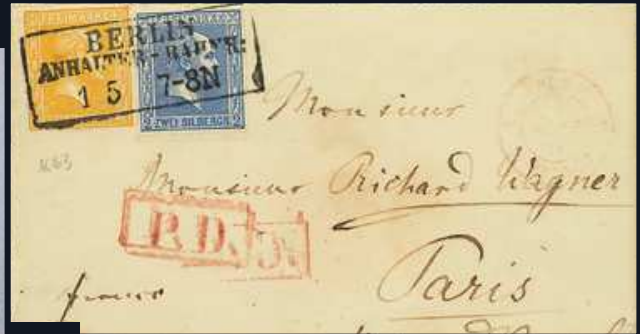 FREIMARKE
BERLIN
ANHALTER-BAHNH:
1 5 7-8N
2 ZWEI SILBERGR. 2
Monsieur
Monsieur Richard Wagner
Paris
P.D.
franco